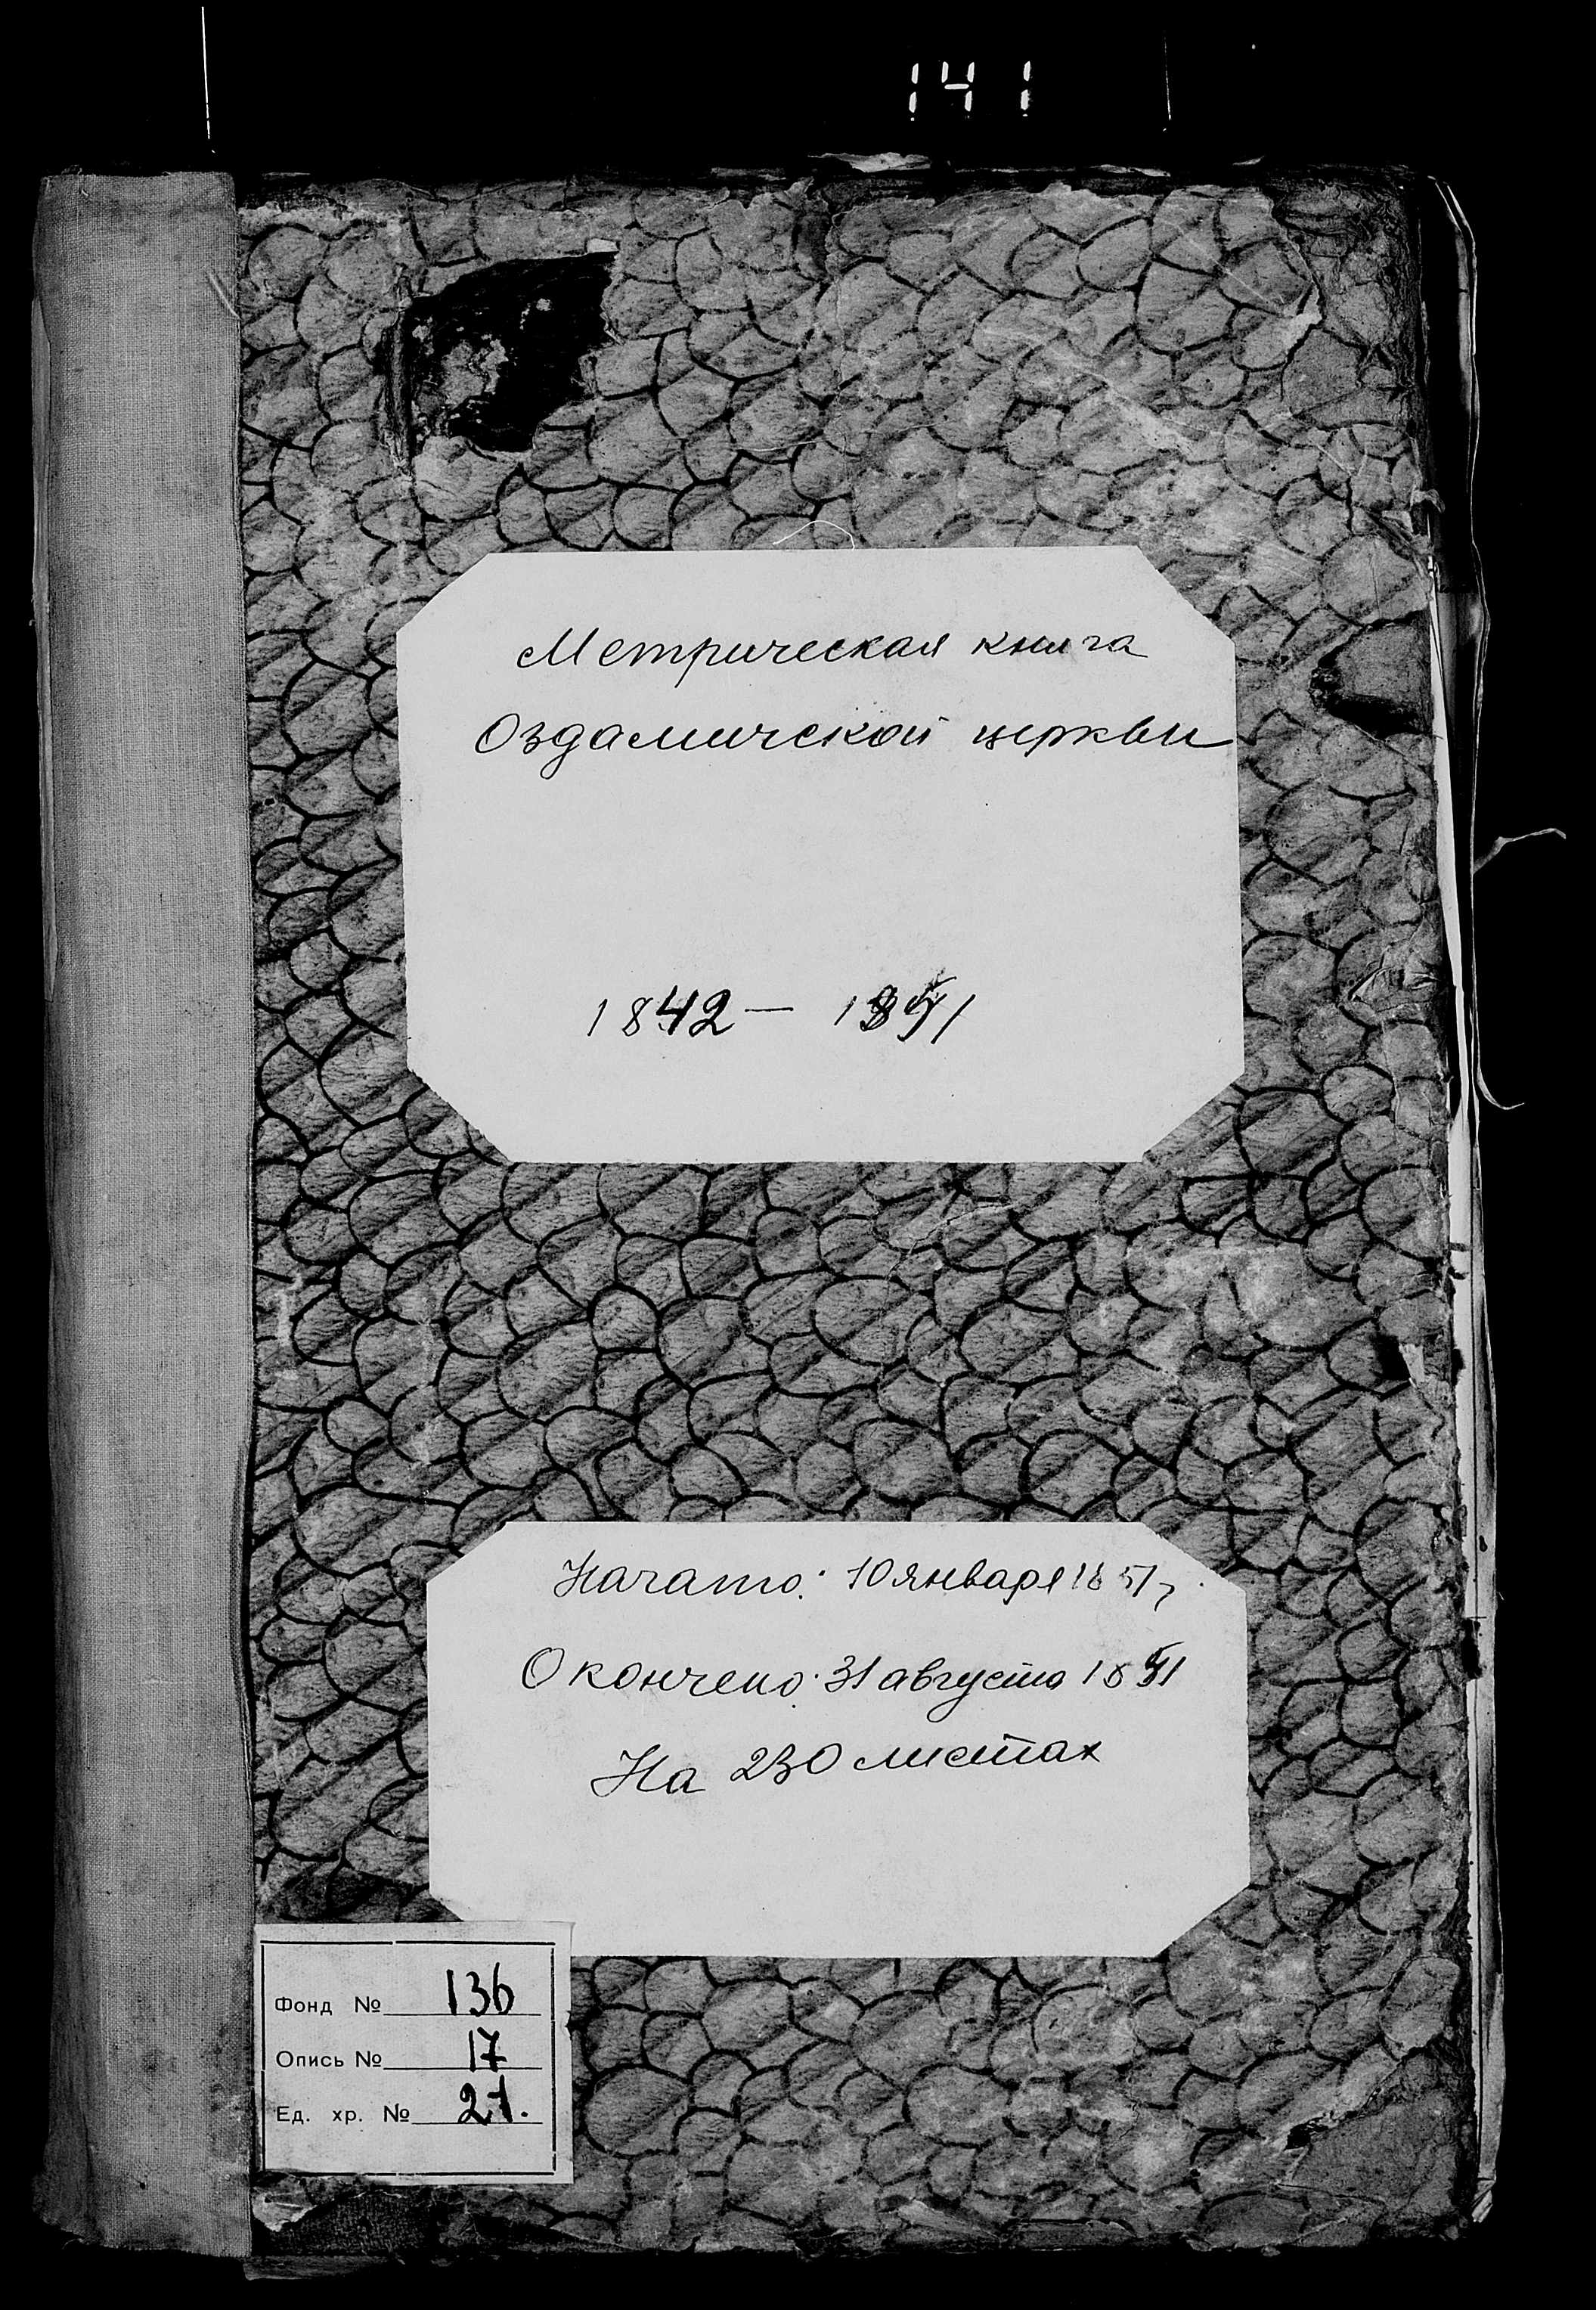 141
Метрическая книга
Оздамической церкви
1842 — 1851
Начато: 10 января 1851 г.
Окончено: 31 августа 1851
На 230 листах
Фонд № 136
Опись № 17
Ед. хр. № 21.